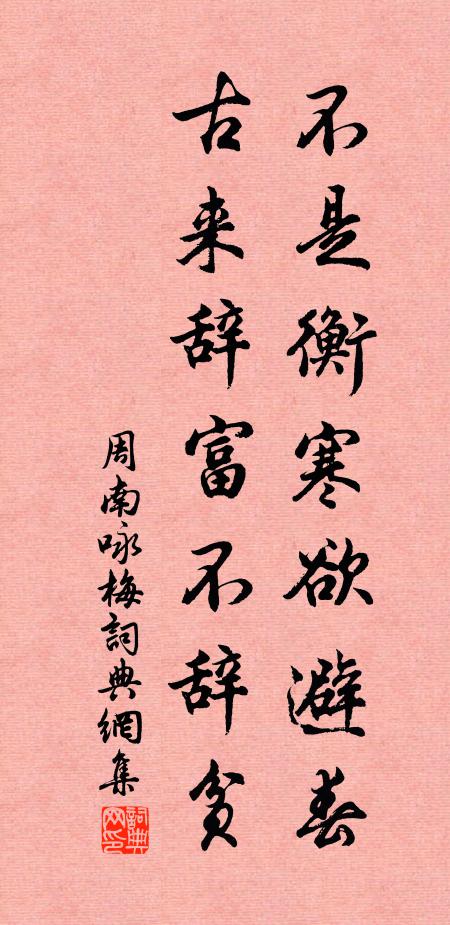 不是衡寒欲避春
古来辞富不辞贫
周南咏梅詞典網集
詞典
网印